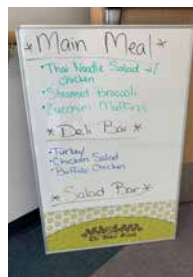 * Main Meal *
• Thai Noodle Salad w/
chicken
• Steamed broccoli
• Zucchini Muffins
* Deli Bar *
• Turkey
• Chicken Salad
• Buffalo Chicken
* Salad Bar *